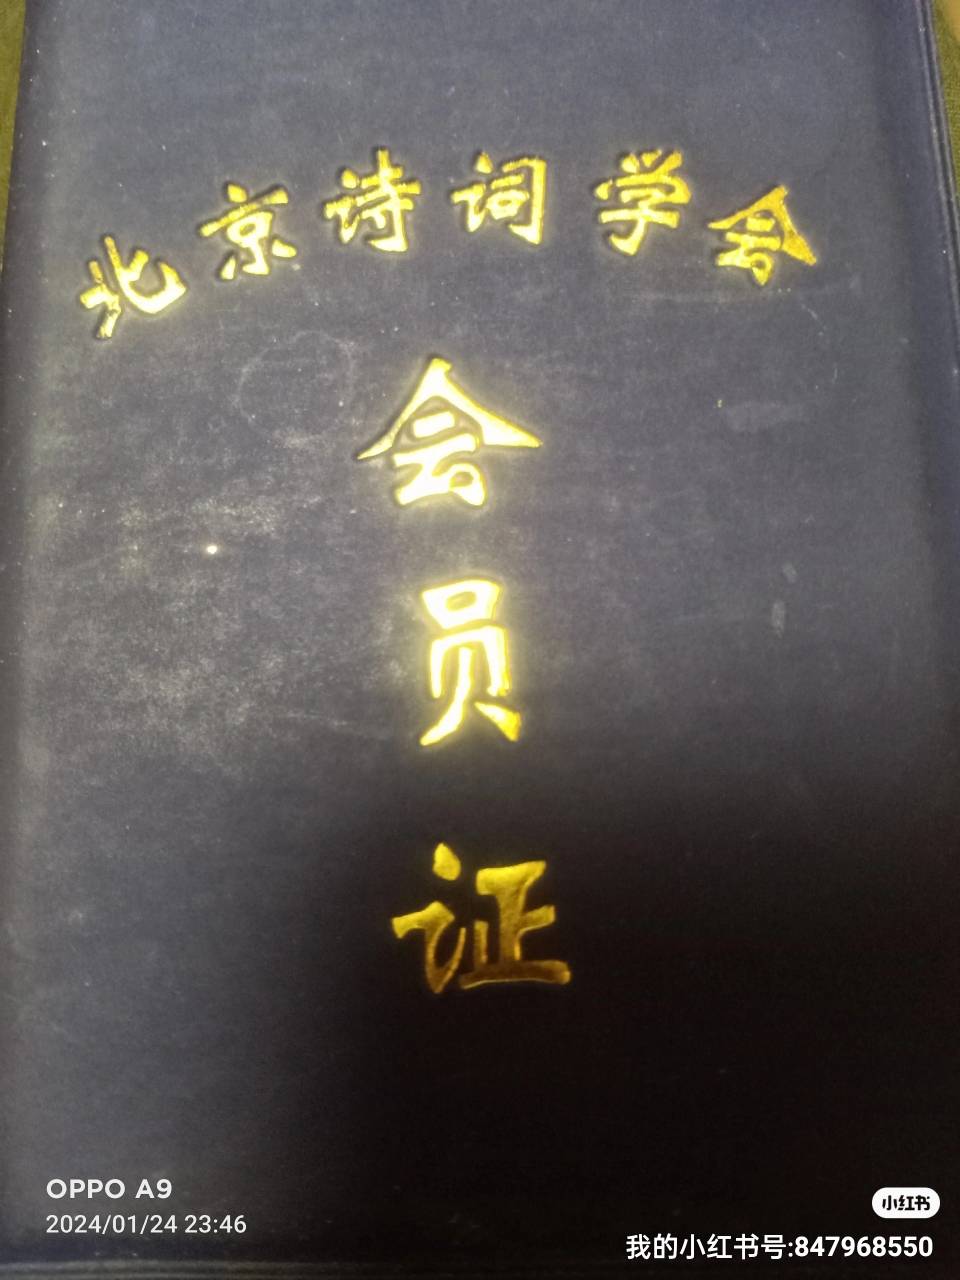 北京诗词学会
会
员
证
OPPO A9
2024/01/24 23:46
小红书
我的小红书号:847968550